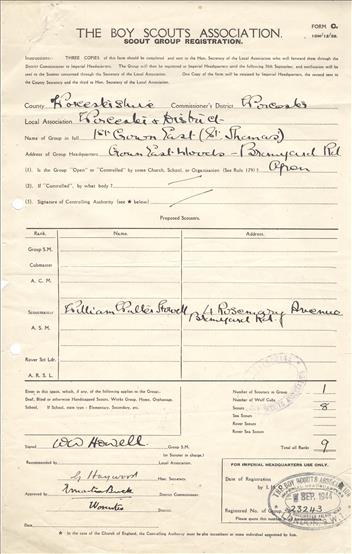 FORM C.
THE BOY SCOUTS ASSOCIATION.
SCOUT GROUP REGISTRATION.
Instructions: THREE COPIES of this form should be completed and sent to the Hon. Secretary of the Local Association who will forward them through the
District Commissioner to Imperial Headquarters. The Group will then be registered at Imperial Headquarters until the following 30th September, and notification will be
sent to the Scouter concerned through the Secretary of the Local Association. One Copy of the form will be retained by Imperial Headquarters, the second sent to
the County Secretary and the third to the Hon. Secretary of the Local Association.
County Worcestershire Commissioner's District Worcester
Local Association Worcester & District
Name of Group in full 1st Crown East (St. Thomas)
Address of Group Headquarters Crown East Woods - Bromyard Rd
(1). Is the Group "Open" or "Controlled" by some Church, School, or Organisation (See Rule 179) ? Open
(2). If "Controlled," by what body ?
(3). Signature of Controlling Authority (see ★ below)
Proposed Scouters.
Rank. Name. Address.
Group S.M.
Cubmaster
A. C. M.
Scoutmaster William Walter Howell 4 Rosemary Avenue
Bromyard Rd.
A. S. M.
Rover Sct Ldr.
A. R. S. L.
Enter in this space, which, if any, of the following applies to the Group:-
Deaf, Blind or otherwise Handicapped Scouts, Works Group, Home, Orphanage,
School. If School, state type - Elementary, Secondary, etc.
Number of Scouters in Group 1
Number of Wolf Cubs
Scouts 8
Sea Scouts
Rover Scouts
Rover Sea Scouts
Total all Ranks 9
Signed WW Howell Group S.M.
(or Scouter in charge).
Recommended by Local Association.
G Haywood Hon. Secretary.
Approved by District Commissioner.
Worcester District.
FOR IMPERIAL HEADQUARTERS USE ONLY.
Date of Registration
by I.H.
Registered No. of Group 23243
Please quote this number
THE BOY SCOUTS ASSOCIATION
SEP. 1944
LONDON, S.W.1
★ In the case of the Church of England, the Controlling Authority must be the incumbent or someone authorised by him.